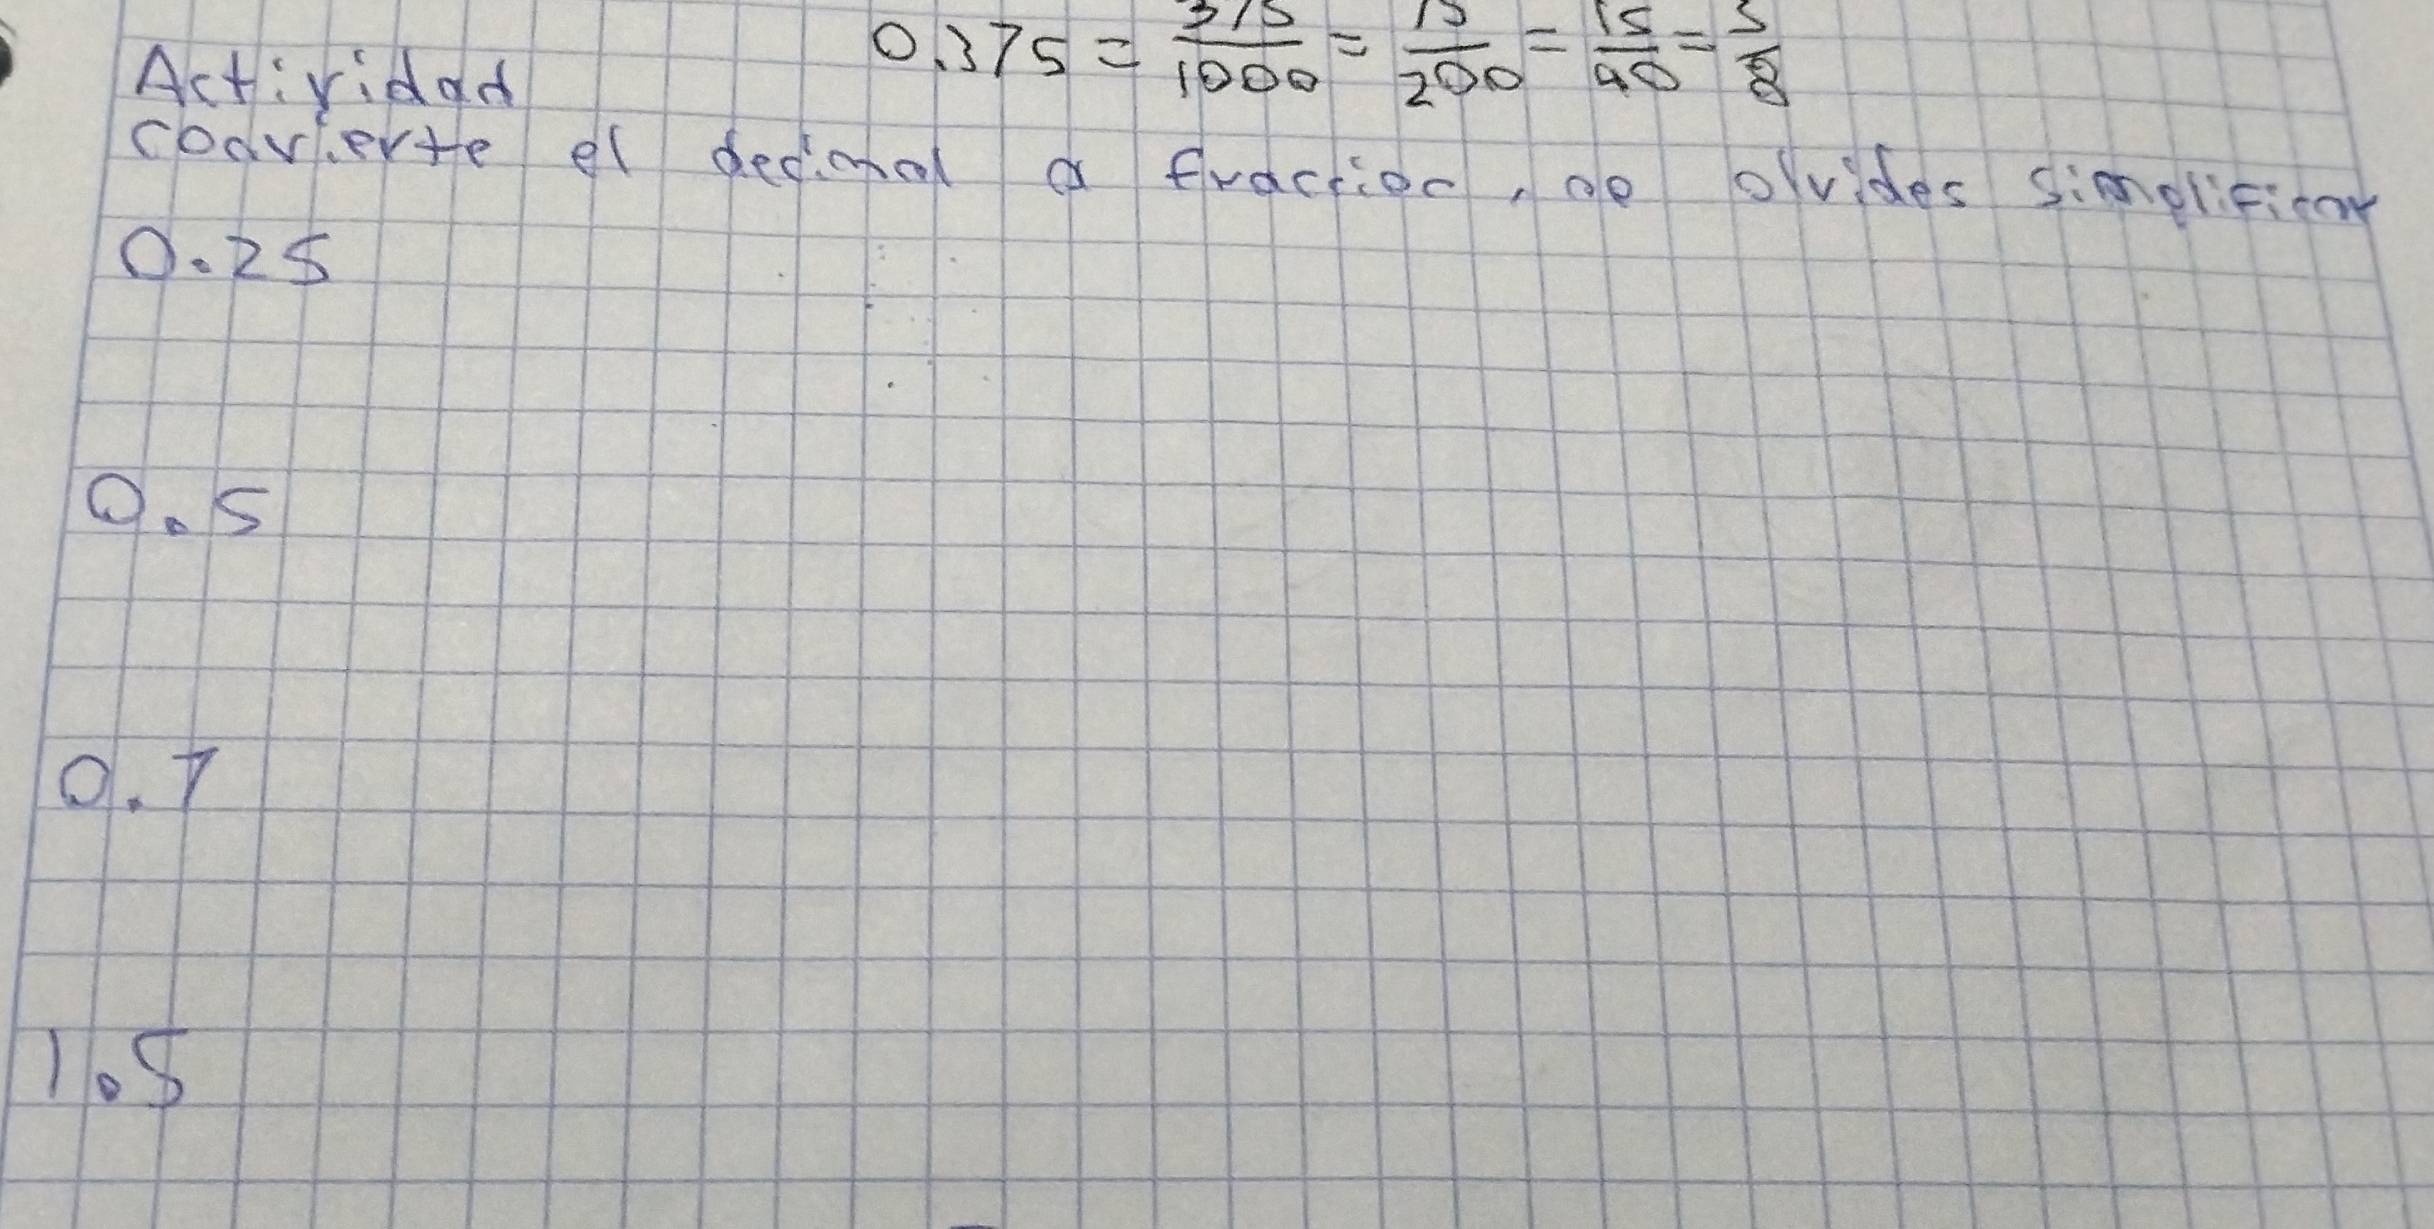 0.375 = 375/1000 = 75/200 = 15/40 = 3/8
Actividad
convierte el decimal a fraccion, no olvides simplificar
0.25
0.5
0.7
1.5